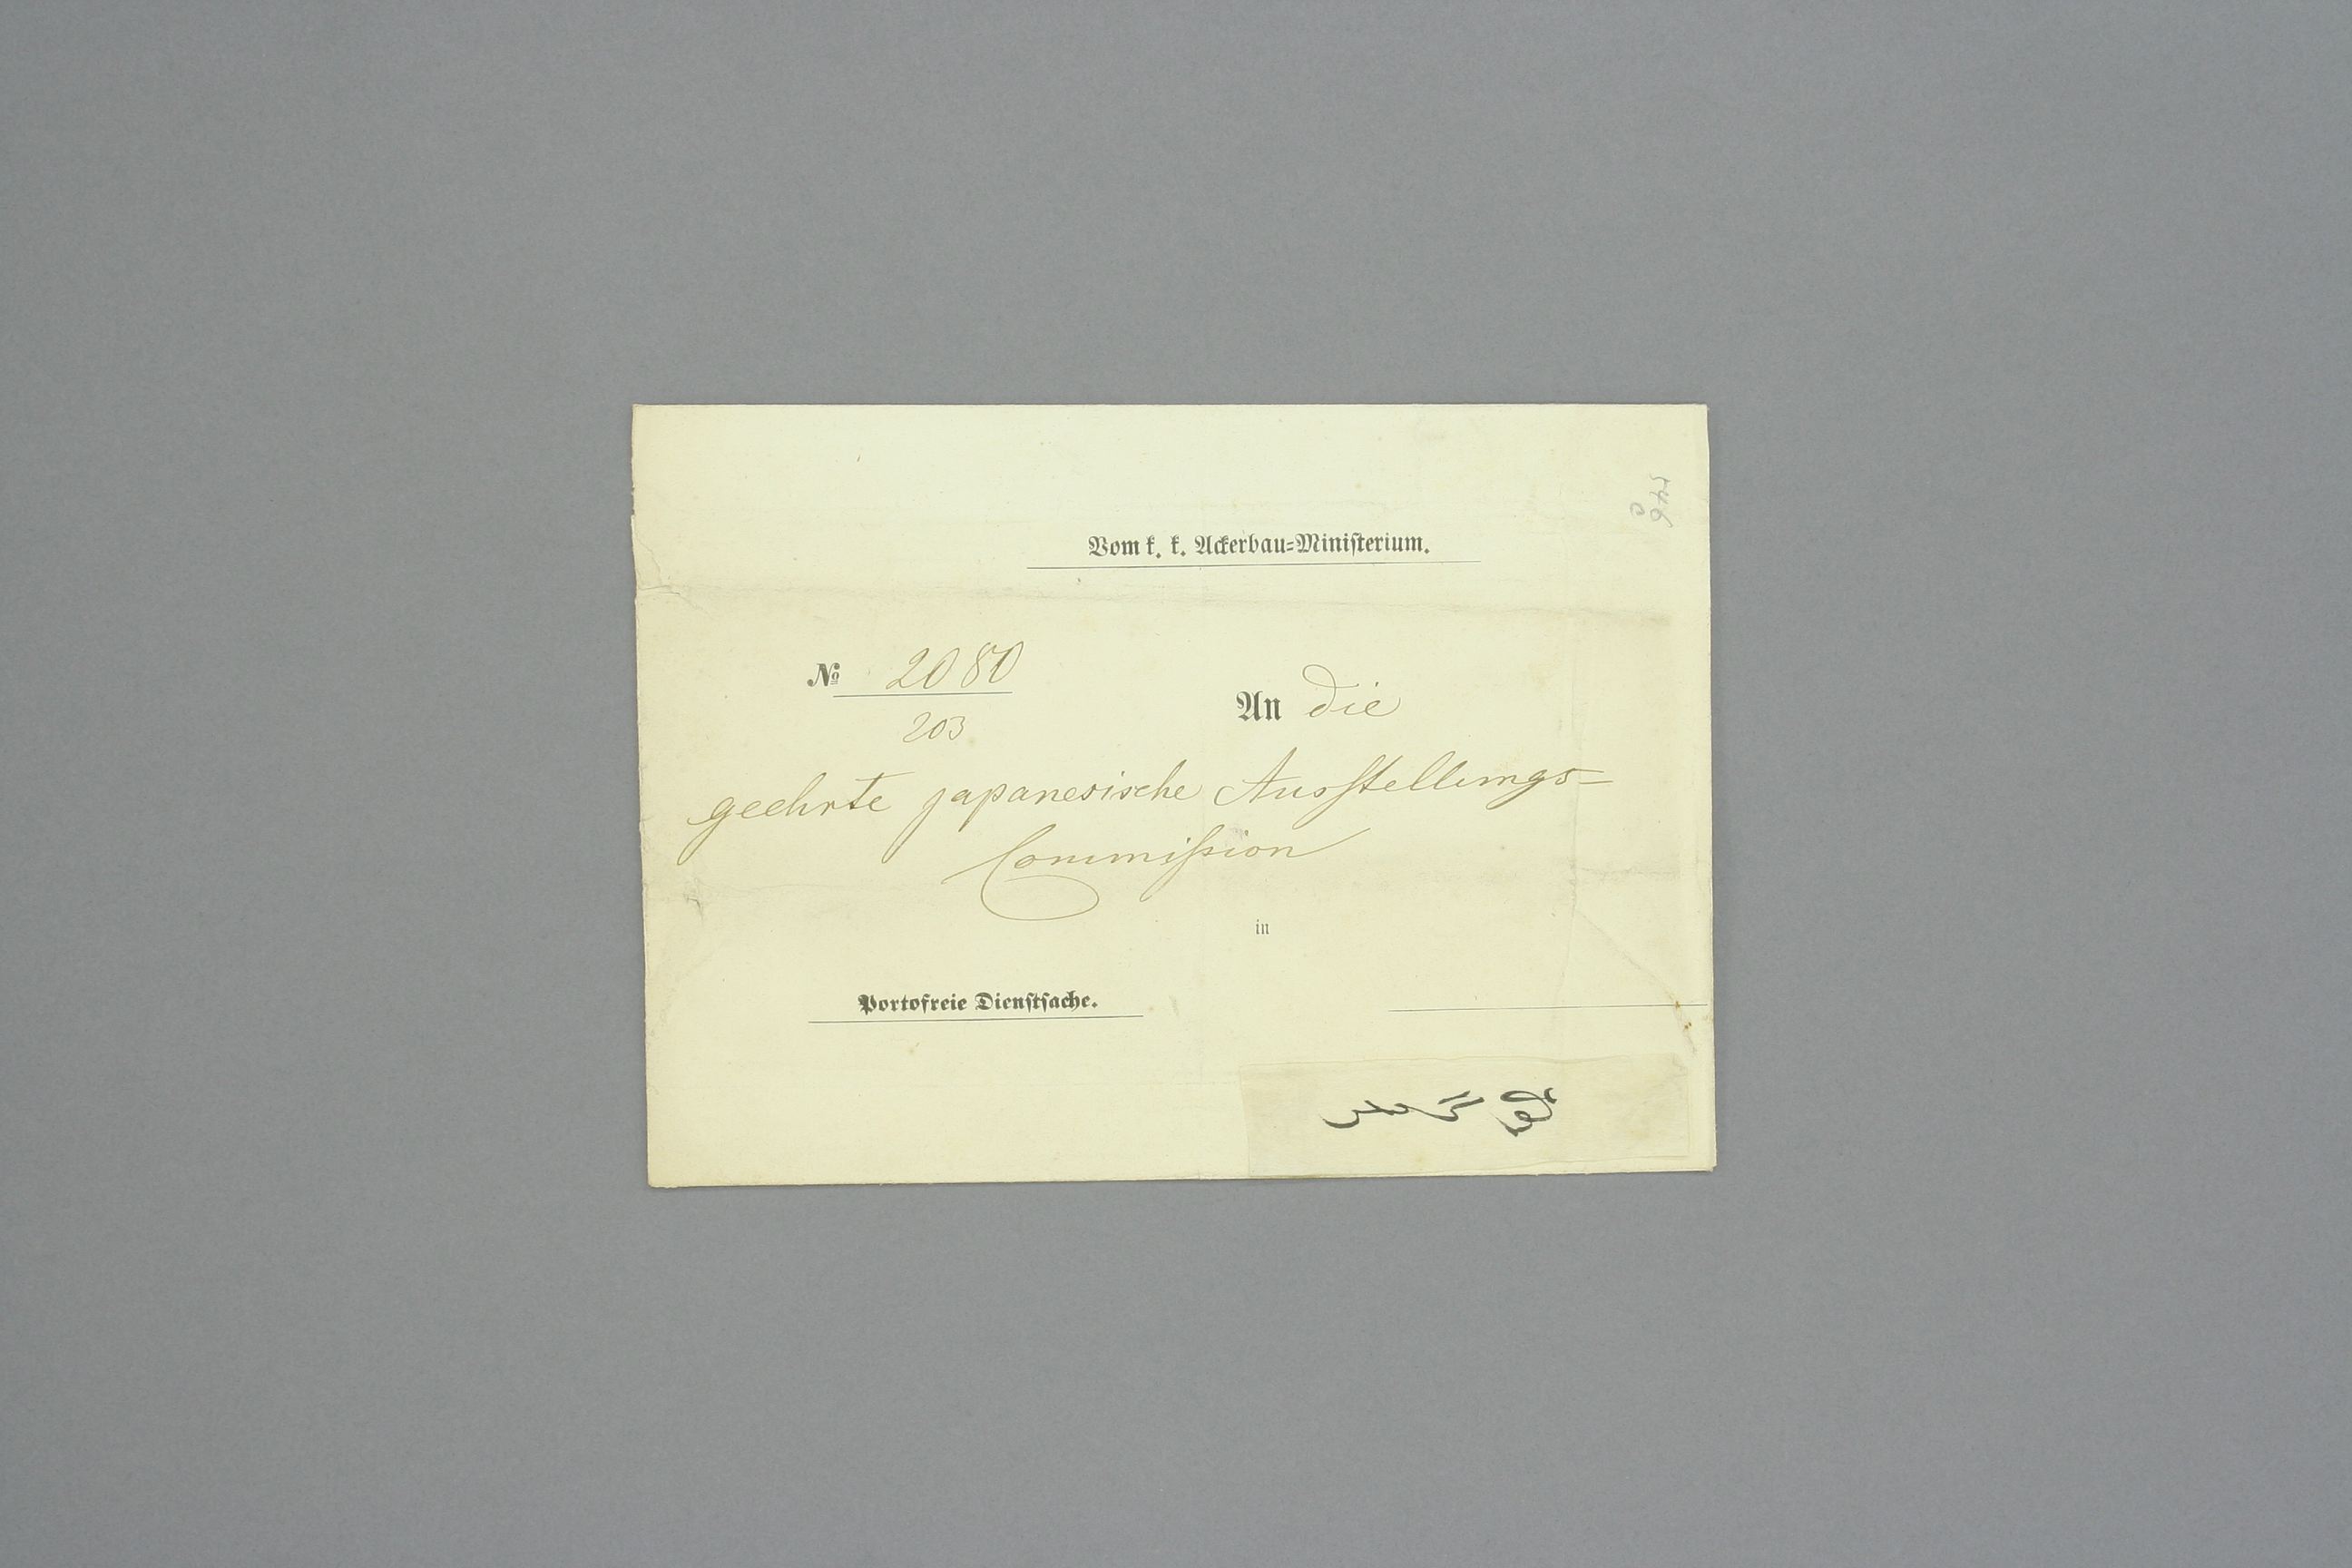 Vom k. k. Ackerbau-Ministerium.
№ 2080
203
An die
geehrte japanesische Ausstellungs-
Commißion
in
Portofreie Dienstsache.